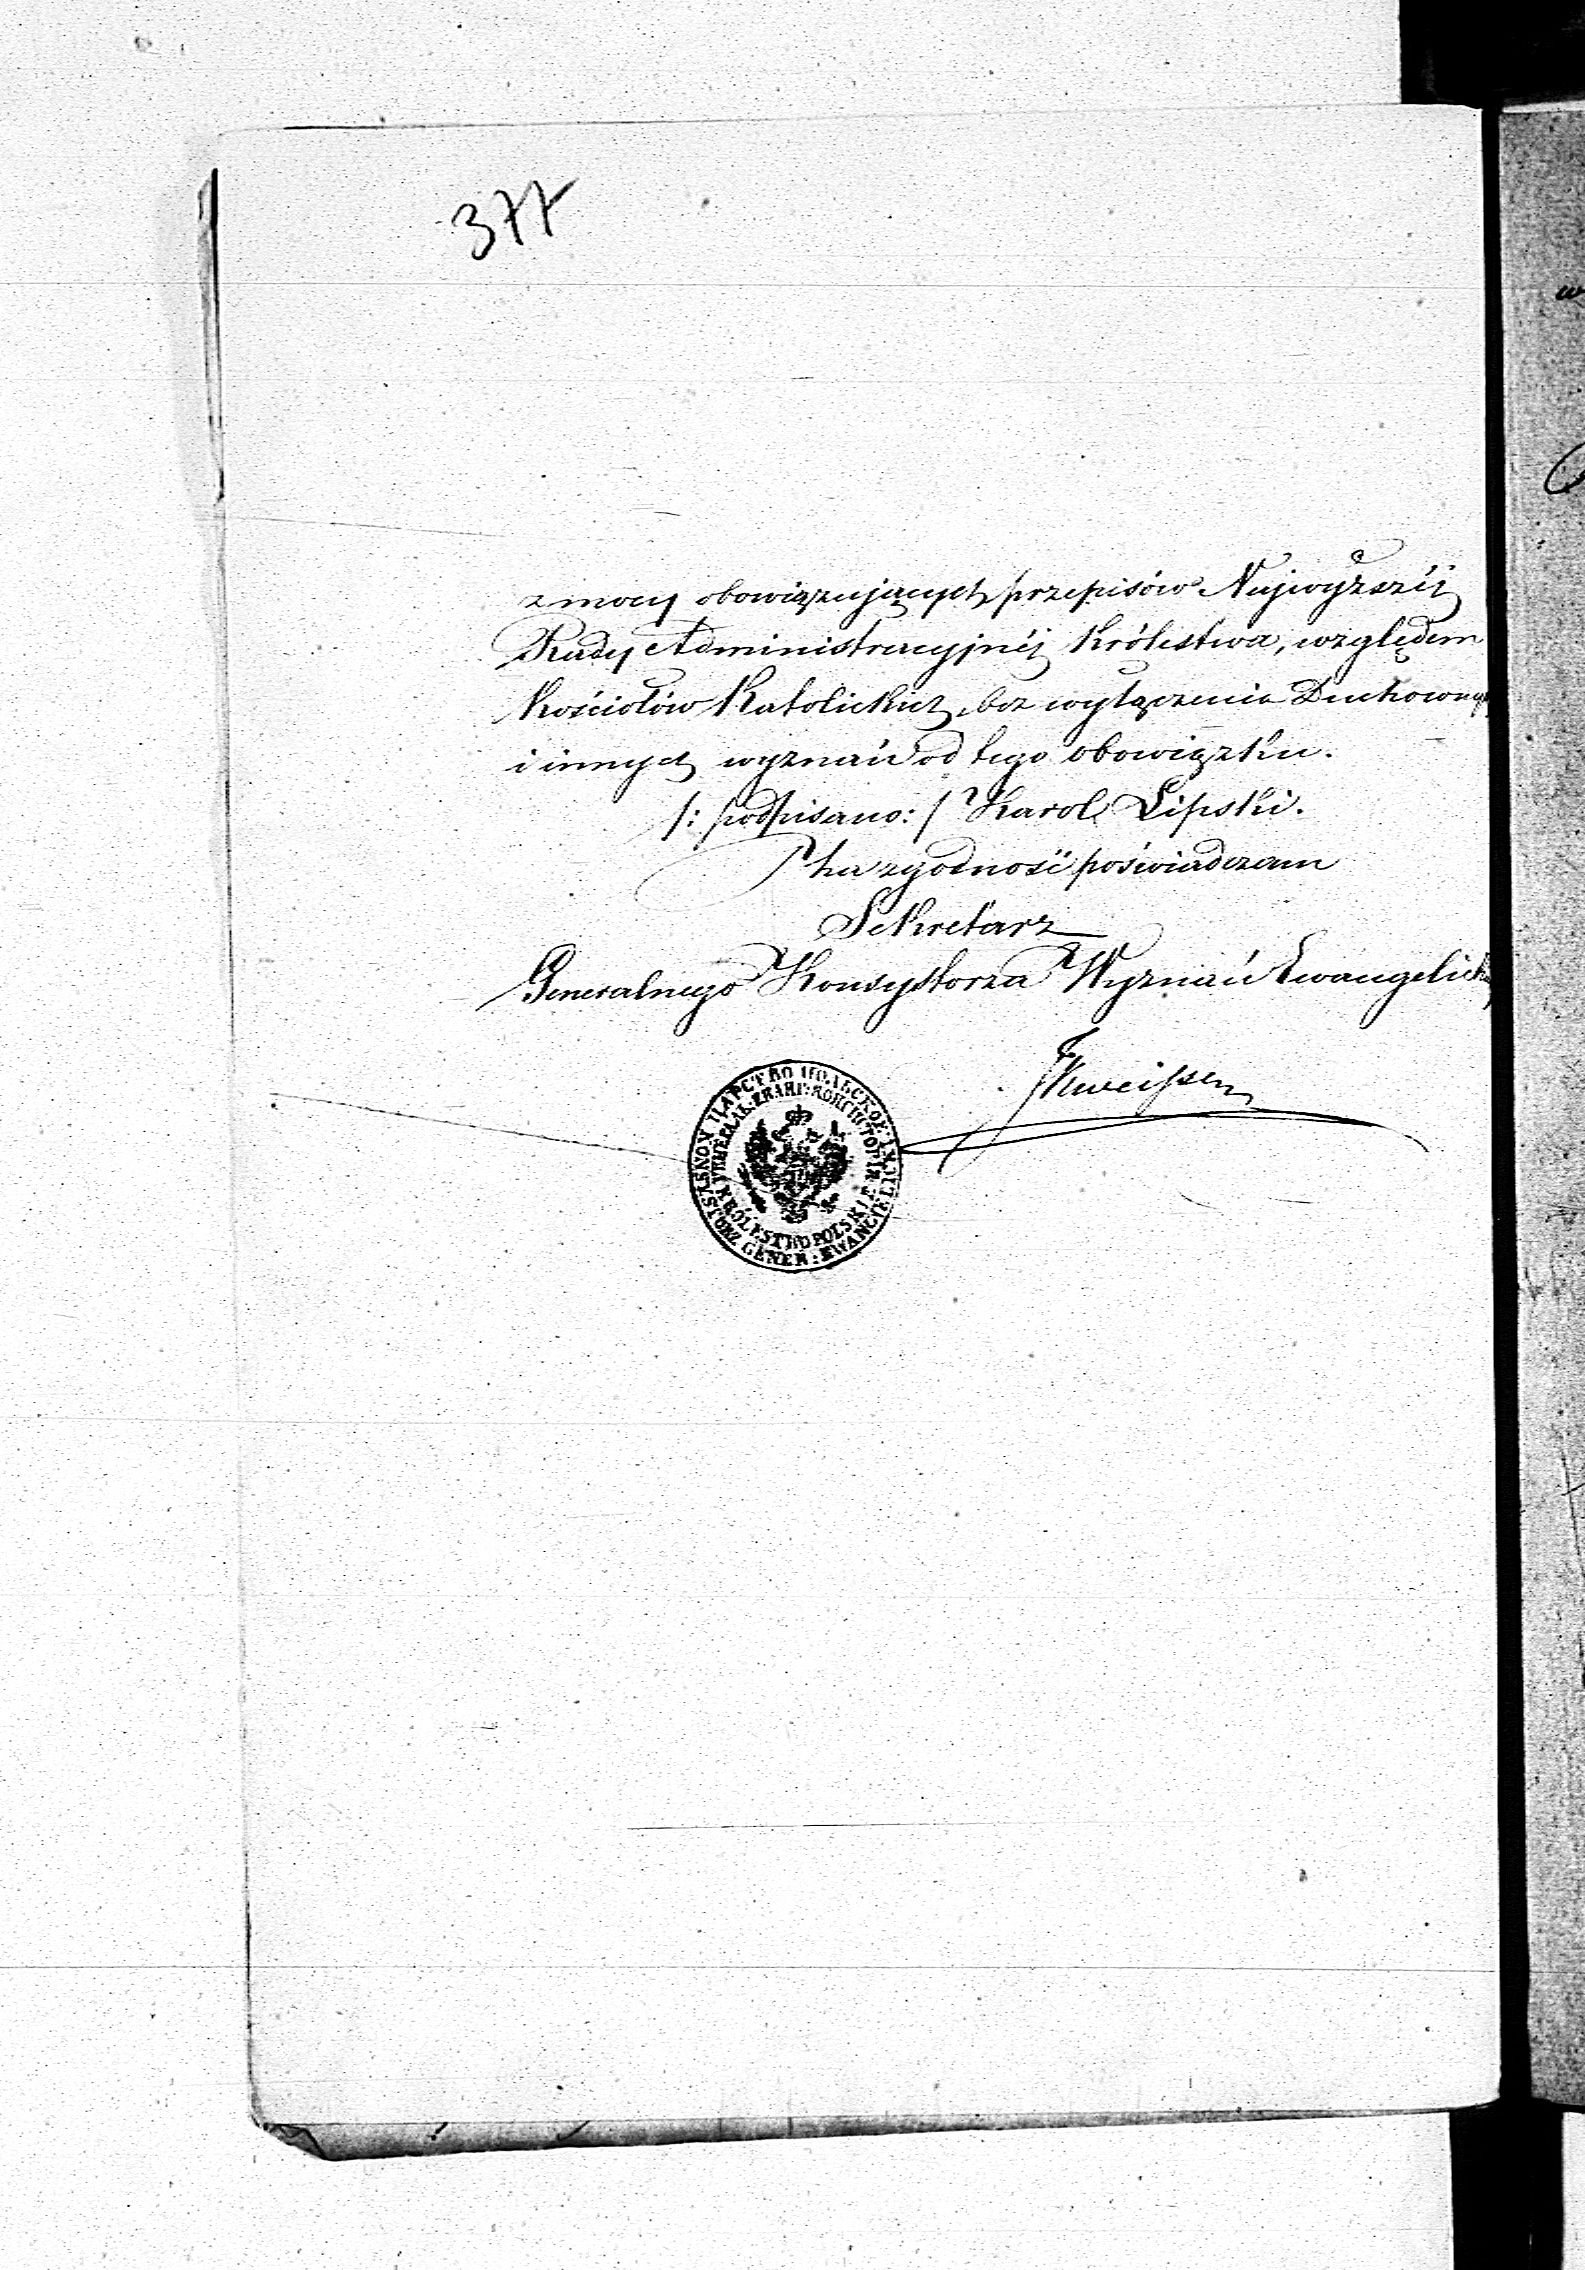 377
z mocy obowiązujących przepisów Najwyższéj
Rady Administracyjnéj Królestwa, względem
Kościołów Katolickich, bez wyłączenia Duchownych
i innych wyznań od tego obowiązku.
/: podpisano: / Karol Lipski.
Za zgodność poświadczam
Sekretarz
Generalnego Konsystorza Wyznań Ewangelickich
ЦАРСТВО ПОЛЬСКОЕ
ГЕНЕРАЛ: ЕВАНГ: КОНСИСТОРІЯ
KRÓLESTWO POLSKIE
KONSYSTORZ GENER: EWANGIELICKI